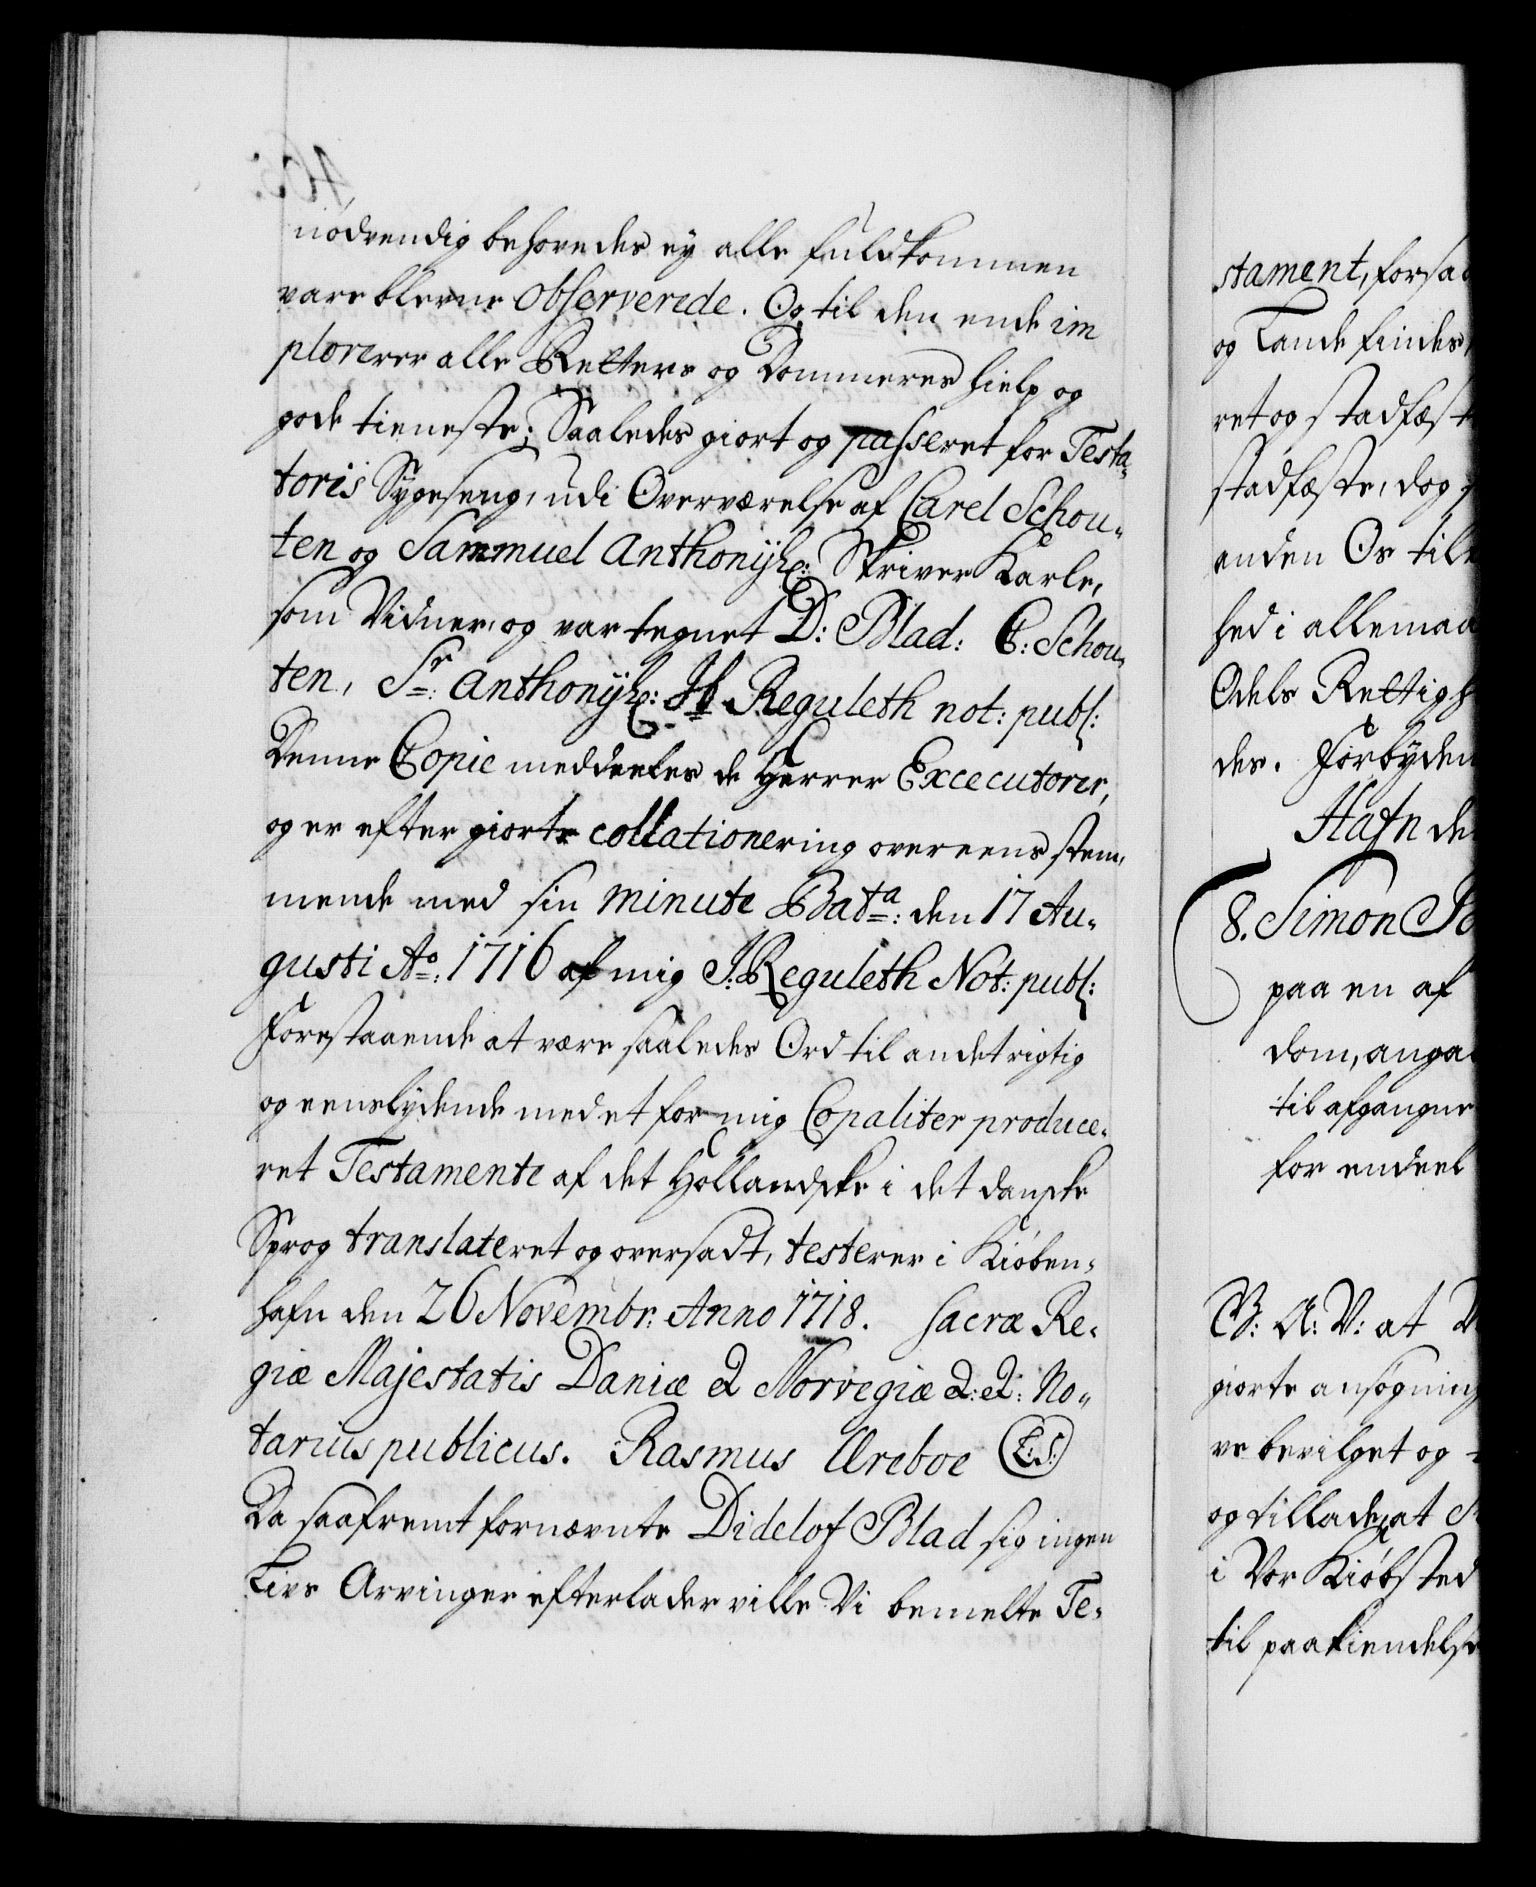 nødvendig behovedes ey alle fuldkommen
vare blevne observerede. Og til den ende im
plorerer alle Retters og Dommeres hielp og
gode tieneste; Saaledes giort og passeret for Testa-
toris Sygeseng, udi Overværelse af Carel Schou-
ten og Sammuel Anthonijs: Skriver Karle,
som Vidner, og var tegnet D: Blad: C: Schou-
ten, Sr: Anthonijs: Reguleth not: publ:
Denne Copie meddeeles de Herrer Excecutorer,
og er efter giorte collationering overeens stem-
mende med sin minute Bata: den 17 Au-
gusti Ao: 1716 af mig J: Reguleth Not: publ:
Forestaaende at være saaledes Ord til andet rigtig
og eenslydende med et for mig Copaliter produce-
ret Testamente af det Hollandske i det danske
Sprog translateret og oversadt, testerer i Kiøben-
hafn den 26 Novembr: Anno 1718. Sacræ Re-
giæ Majestatis Daniæ & Norvegiæ &: &: No-
tarius publicus. Rasmus Ereboe (L.S.)
Da saafremt fornævnte Didelof Blad sig ingen
Livs Arvinger efterlader ville Vi bemelte Te-
stament, forsaa
og Lande findes
ret og stadfæst
stadfæste, dog
enden Os til
hed i allemaa
Odels Rettigh
des. Forbyden
Hafn de
8. Simon
paa en af
dom, anga
til afgangne
for endeel
G: A: V: at V
giorte ansøgning
ve bevilget og
og tillade, at
i Vor Kiøbsted
til paakiendelse